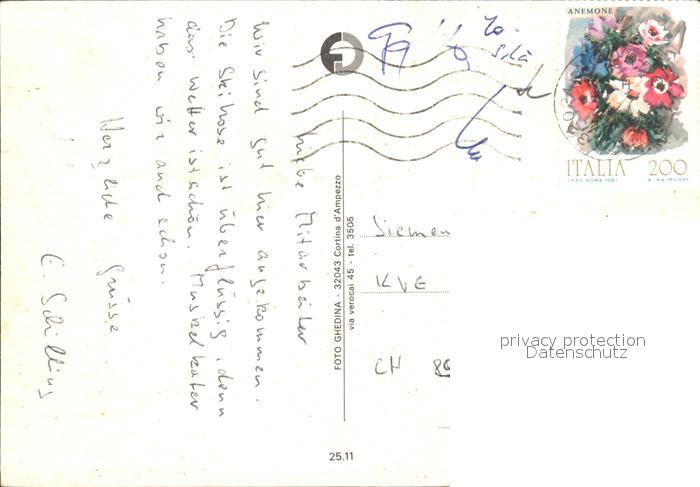 Liebe Mitarbeiter
Wir sind gut hier angekommen.
Die Skihose ist überflüssig, denn
das Wetter ist schön. Muskelkater
haben wir auch schon.
Herzliche Grüsse
E. Schilling
FOTO GHEDINA - 32043 Cortina d'Ampezzo
via verocai 45 - tel. 3505
25.11
ANEMONE
ITALIA 200
I.P.Z.S. ROMA 1981
Siemen
KVE
CH 89
privacy protection
Datenschutz